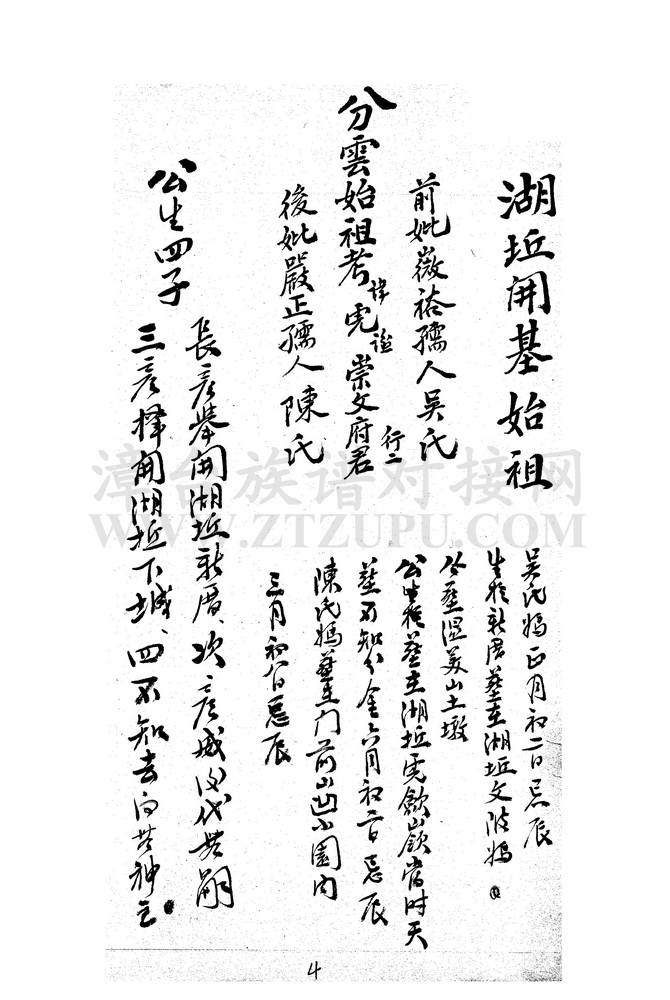 湖坵開基始祖
前妣嶶裕孺人吳氏
分雲始祖考諱虎諡崇文府君行二
後妣嚴正孺人陳氏
吳氏媽正月初二日忌辰
生於新厝墓在湖坵文陂媽
墘温美山土墩
公生於墓在湖坵虎歕山嶺當时天
葬不知分金六月初二日忌辰
陳氏媽墓在门前山凹小園内
三月初八日忌辰
公生四子
長彦舉開湖坵新厝、次彦威四代無嗣
三彦擇開湖坵下城、四不知去向無神主
漳台族谱对接网
WWW.ZTZUPU.COM
4